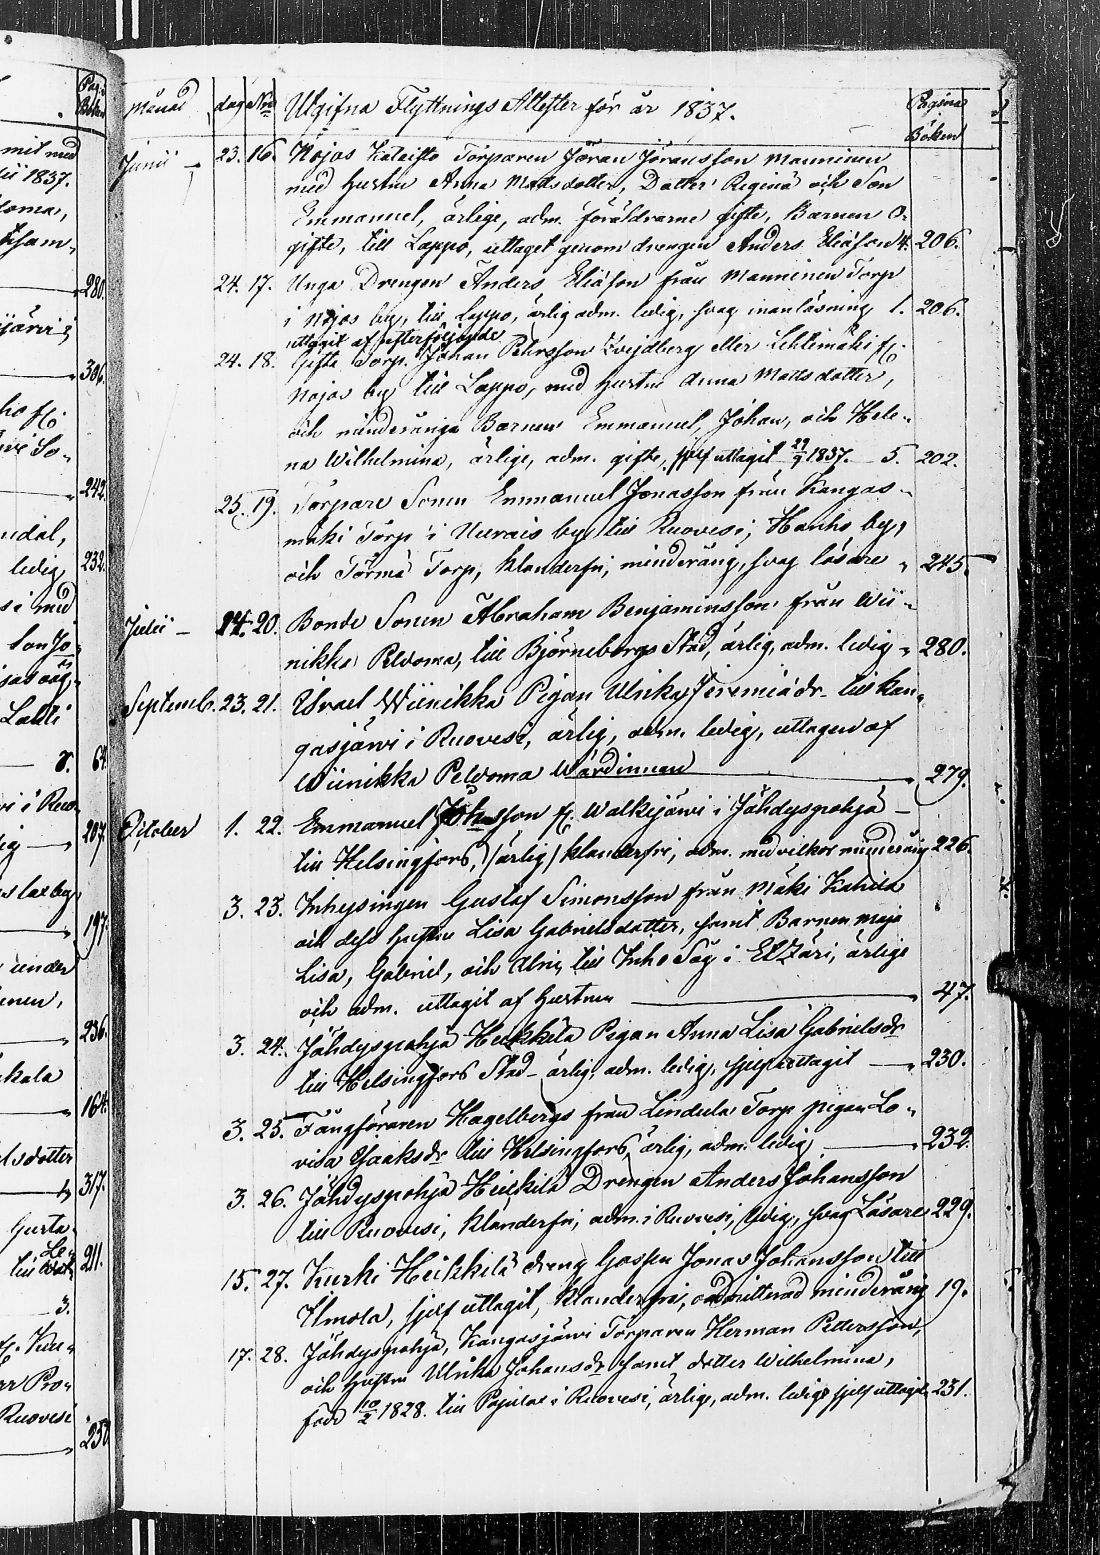 Månad dag Nro Utgifna Flyttnings Attester för år 1837. Pagina Boken
Junii 23. 16. Nojos Kataisto Torparen Jöran Jöransson Manninen
med Hustru Anna Mattsdotter, Dotter Regina och Son
Emmanuel, ärlige, adm. föräldrarne gifte, Barnen o-
gifte, till Lappo, uttaget genom drengen Anders Eliasson 4. 206.
24. 17. Unga Drengen Anders Eliasson från Manninen Torp
i Nojos by, till Lappo, ärlig adm. ledig, svag innanläsning 1. 206.
uttagit af efterföljande
24. 18. Gifta Torp. Johan Pehrsson Lehtimäki fr.
Nojos by till Lappo, med Hustru Anna Mattsdotter,
och minderåriga Barnen Emmanuel, Johan, och Hele-
na Wilhelmina, ärlige, adm. gifte, sjelf uttagit 1837. 5. 202.
25. 19. Torpare Sonen Emmanuel Jonasson från Kangas-
mäki Torp i Neurais by till Ruovesi, Hanho by,
och Törmä Torp, klanderfri, minderårig, svag läsare " 245.
Julii 14. 20. Bonde Sonen Abraham Benjaminsson från Wii-
nikka Peldoma, till Björneborgs Stad, ärlig, adm. ledig " 280.
Septemb. 23. 21. Israel Wiinikka Pigan Ulrika Jeremiædr. till Kan-
gasjärvi i Ruovesi, ärlig, adm. ledig, uttagen af
Wiinikka Peldoma Wärdinnan 279.
October 1. 22. Emmanuel Johansson fr. Walkejärvi i Jähdyspohja
till Helsingfors, (ärlig) klanderfri, adm. med vilkor minderårig 226.
3. 23. Inhysingen Gustaf Simonsson från Mäki Kahila
och dess Hustru Lisa Gabrielsdotter, samt Barnen Maja
Lisa, Gabriel, och till Inho Såg i Etzäri, ärlige
och adm. uttagit af Hustrun 47.
3. 24. Jähdyspohja Heikkilä Pigan Anna Lisa Gabrielsdr
till Helsingfors Stad, ärlig, adm. ledig, sjelf uttagit 230.
3. 25. Fångföraren Hagelbergs från Lindula Torp pigan Lo-
visa Isaaksdr till Helsingfors, ärlig, adm. ledig 232.
3. 26. Jähdyspohja Heikkilä Drengen Anders Johansson
till Ruovesi, klanderfri, adm. i Ruovesi, ledig, svag Läsare 229.
15. 27. Kurki Heikkilä dreng Gossen Jonas Johansson till
Ilmola, sjelf uttagit, klanderfri, oadmitterad minderårig 19.
17. 28. Jähdyspohja, Kangasjärvi Torparen Herman Pettersson,
och Hustru Ulrika Johansdr samt dotter Wilhelmina,
född 10/2 1828. till Pajulax i Ruovesi, ärlige, adm. ledige sjelf uttagit 231.